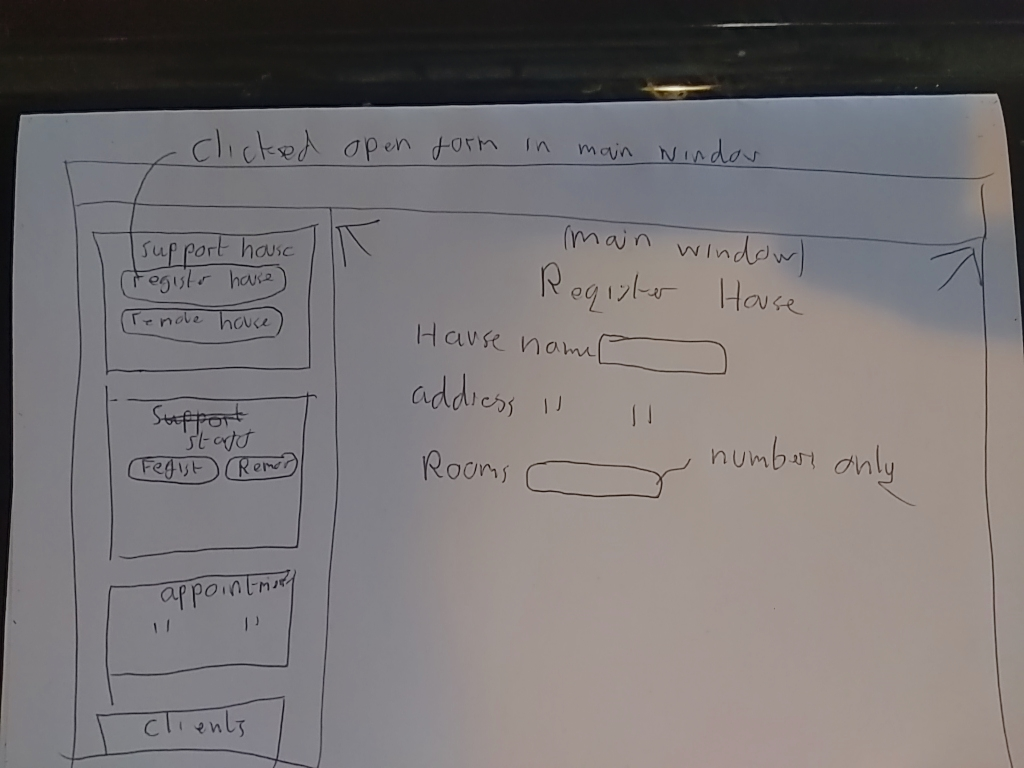 Clicked open form in main window
Support house
register house
remove house
Support
staff
Regist Remov
appointment
" "
Clients
(main window)
Register House
House name
address " "
Rooms numbers only